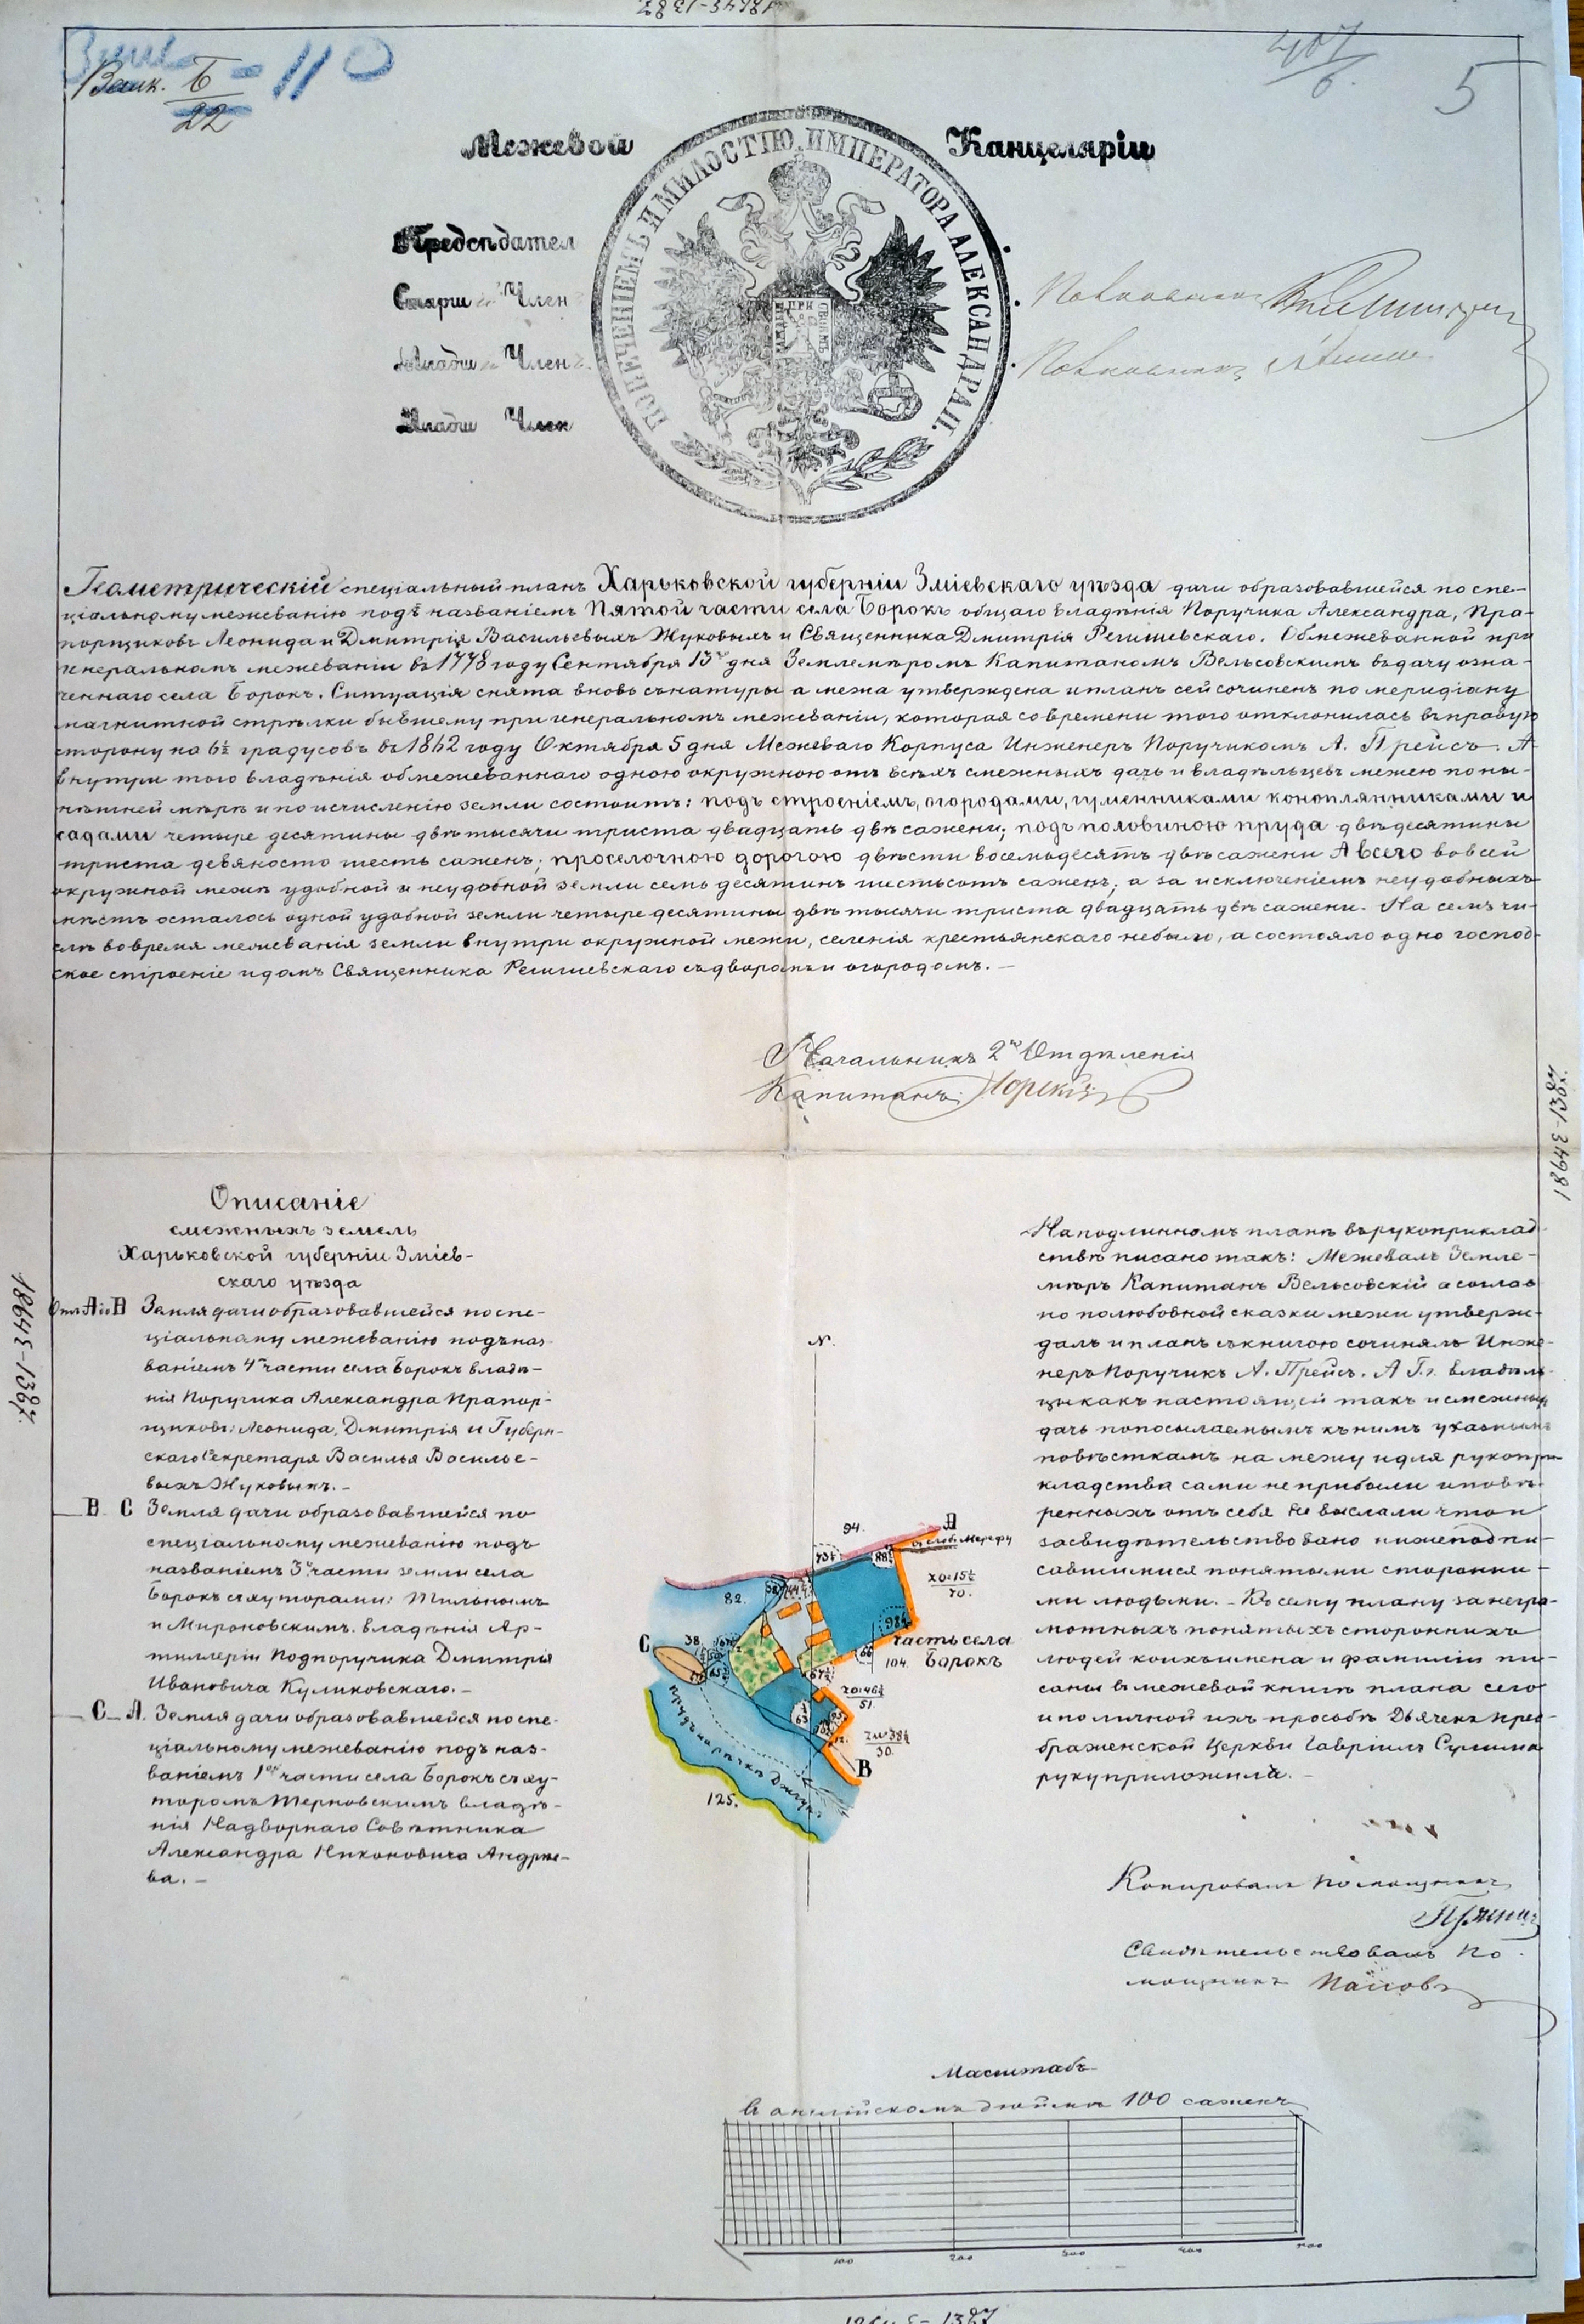 18643-1387
Змиев - 110
Валк. Б
22
407
6.
5
Межевой Канцеляріи
ПОПЕЧЕНІЕМЪ И МИЛОСТІЮ ИМПЕРАТОРА АЛЕКСАНДРА II.
Предсѣдател
Старш Член
Младш Член
Младш Член
Полковникъ
Полковникъ
Геометрическій спеціальный планъ Харьковской губерніи Зміевскаго уѣзда дачи образовавшейся по спе-
ціальному межеванію подъ названіемъ Пятой части села Борокъ общаго владѣнія Поручика Александра, Пра-
порщиковъ Леонида и Дмитрія Васильевыхъ Жуковыхъ и Священника Дмитрія Регишевскаго. Обмежеванной при
генеральномъ межеваніи въ 1778 году Сентября 13го дня Землемѣромъ Капитаномъ Вельсовскимъ въ дачу озна-
ченнаго села Борокъ. Ситуація снята вновь съ натуры а межа утверждена и планъ сей сочиненъ по меридіану
магнитной стрѣлки бывшему при генеральномъ межеваніи, которая со времени того отклонилась въ правую
сторону на 6½ градусовъ въ 1862 году Октября 5 дня Межеваго Корпуса Инженеръ Поручикомъ А. Прейсъ. А
внутри того владѣнія обмежеваннаго одною окружною отъ всѣхъ смежныхъ дачъ и владѣльцевъ межею по ны-
нѣшней мѣрѣ и по исчисленію земли состоитъ: подъ строеніемъ, огородами, гуменниками коноплянниками и
садами четыре десятины двѣ тысячи триста двадцать двѣ сажени; подъ половиною пруда двѣ десятины
триста девяносто шесть саженъ; проселочною дорогою двѣсти восемьдесятъ двѣ сажени А всего во всей
окружной межѣ удобной и неудобной земли семь десятинъ шестьсотъ саженъ; а за исключеніемъ неудобныхъ
мѣстъ осталось одной удобной земли четыре десятины двѣ тысячи триста двадцать двѣ сажени. На семъ чи-
слѣ во время межеванія земли внутри окружной межи, селенія крестьянскаго небыло, а состояло одно господ-
ское строеніе и домъ Священника Регишевскаго съ дворомъ и огородомъ.
Начальникъ 2го Отдѣленія
Капитанъ
Описаніе
смежныхъ земель
Харьковской губерніи Зміев-
скаго уѣзда
Отъ А до В Земля дачи образовавшейся по спе-
ціальному межеванію подъ наз-
ваніемъ 4й части села Борокъ владѣ-
нія Поручика Александра Прапор-
щиковъ: Леонида, Дмитрія и Губерн-
скаго Секретаря Василья Василье-
выхъ Жуковыхъ.
В С Земля дачи образовавшейся по
спеціальному межеванію подъ
названіемъ 3й части земли села
Борокъ съ хуторами: Тильнымъ
и Мироновскимъ. владѣнія Ар-
тиллеріи Подпоручика Дмитрія
Ивановича Куликовскаго.
С А. Земля дачи образовавшейся по спе-
ціальному межеванію подъ наз-
ваніемъ 1ой части села Борокъ съ ху-
торомъ Терновскимъ владѣ-
нія Надворнаго Совѣтника
Александра Никоновича Андрѣе-
ва.
N.
94.
А
въ слоб. Мерефу
73½
88½
ZO:15½
70.
82.
98½
часть села
Борокъ
104.
66
67½
С
38.
ZO:46½
51.
63
ZW:38½
30.
12.
В
прудъ на рѣчкѣ Джгунъ
125.
На подлинномъ планѣ въ рукоприклад
ствѣ писано такъ: Межевалъ Земле-
мѣръ Капитанъ Вельсовскій а соглас
но полюбовной сказки межи утверж-
далъ и планъ съ книгою сочинялъ Инже-
неръ Поручикъ А. Прейсъ. А Г.г. владѣль-
цы какъ настоящей такъ и смежныхъ
дачъ по посылаемымъ къ нимъ указнымъ
повѣсткамъ на межу и для рукопри-
кладства сами не прибыли и повѣ-
ренныхъ отъ себя не выслали что и
засвидѣтельствовано нижеподпи-
савшимися понятыми сторонни-
ми людьми. Къ сему плану за негра-
мотныхъ понятыхъ стороннихъ
людей коихъ имена и фамиліи пи-
саны въ межевой книгѣ плана сего
и по личной ихъ просьбѣ Дьячекъ Прео-
браженской Церкви Гавріилъ Сулима
руку приложилъ.
Копировалъ Помощникъ
Свидѣтельствовалъ По
мощникъ Поповъ
Масштабъ
въ англійскомъ дюймѣ 100 саженъ
100 200 300 400 500
18643-1387
18643-1387.
18643-1387